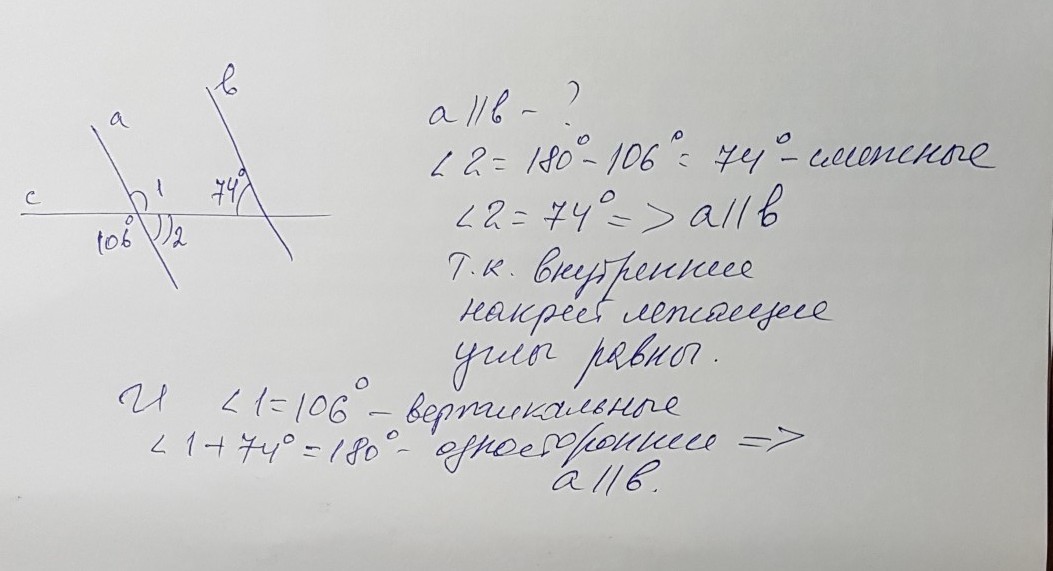 a
b
c
1
74°
106°
2
a // b - ?
∠2 = 180° - 106° = 74° - смежные
∠2 = 74° => a // b
Т.к. внутренние
накрест лежащие
углы равны.
И ∠1 = 106° - вертикальные
∠1 + 74° = 180° - односторонние =>
a // b.